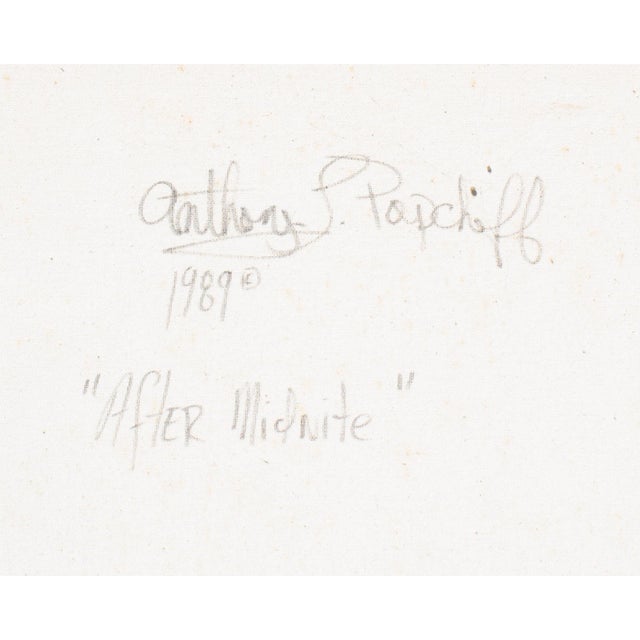 Anthony S. Papcheff
1989©
"After Midnite"